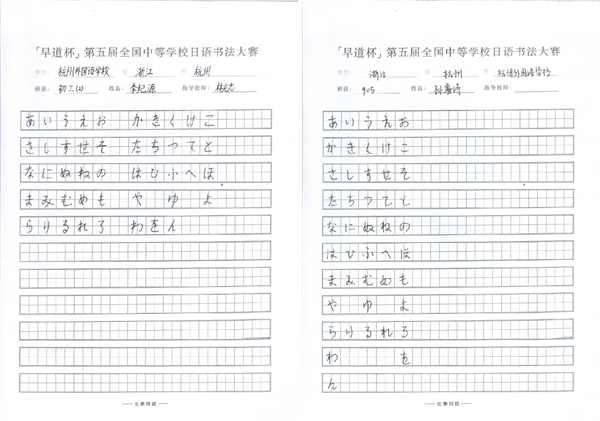 「早道杯」第五届全国中等学校日语书法大赛
杭州外国语学校 省 浙江 市 杭州
班级: 初二(2) 姓名: 指导教师:
あいうえお かきくけこ
さしすせそ たちつてと
なにぬねの はひふへほ
まみむめも や ゆ よ
らりるれろ わをん
比赛用纸
「早道杯」第五届全国中等学校日语书法大赛
浙江 市 杭州
班级: 905 姓名: 指导教师:
あいうえお
かきくけこ
さしすせそ
たちつてと
なにぬねの
はひふへほ
まみむめも
や ゆ よ
らりるれろ
わ を
ん
比赛用纸